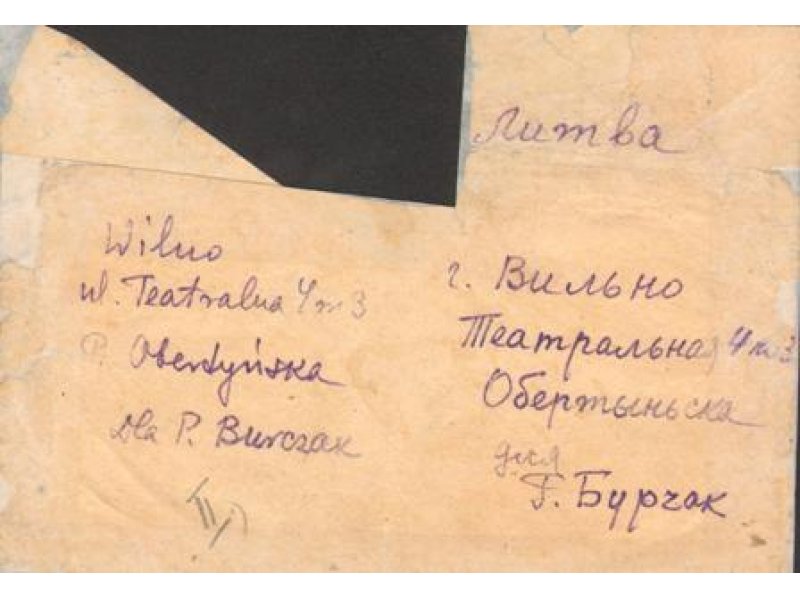 Литва
Wilno
ul. Teatralna 4 m 3
P. Obertyńska
Dla P. Burczak
г. Вильно
Театральная 4 m 3
Обертыньска
для
Г. Бурчак